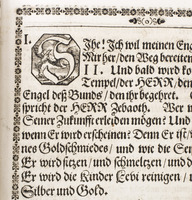 I.
SIhe! Ich wil meinen Eng
Mir her/den Weg bereiten
II. Und bald wird ko
Tempel/der HERR/den
Engel deß Bunds/den ihr begehret.
spricht der HERR Zebaoth. Wer
Seiner Zukunfft erleiden mögen? Und
wenn Er wird erscheinen? Denn Er ist
nes Goldschmiedes/und wie die Sei
Er wird sitzen/und schmeltzen/und
Er wird die Kinder Levi reinigen/
Silber und Gold.